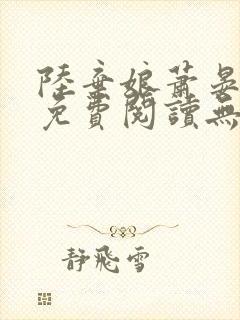 陸棄娘蕭晏
免費閱讀無
靜飛雪